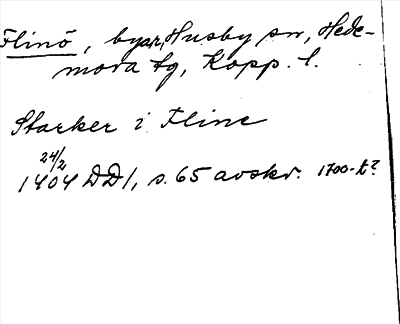 Flinö, byar, Husby sn, Hede-
mora tg, Kopp. l.
Starker i Fline
24/2
1404 DD1, s. 65 avskr. 1700-t?